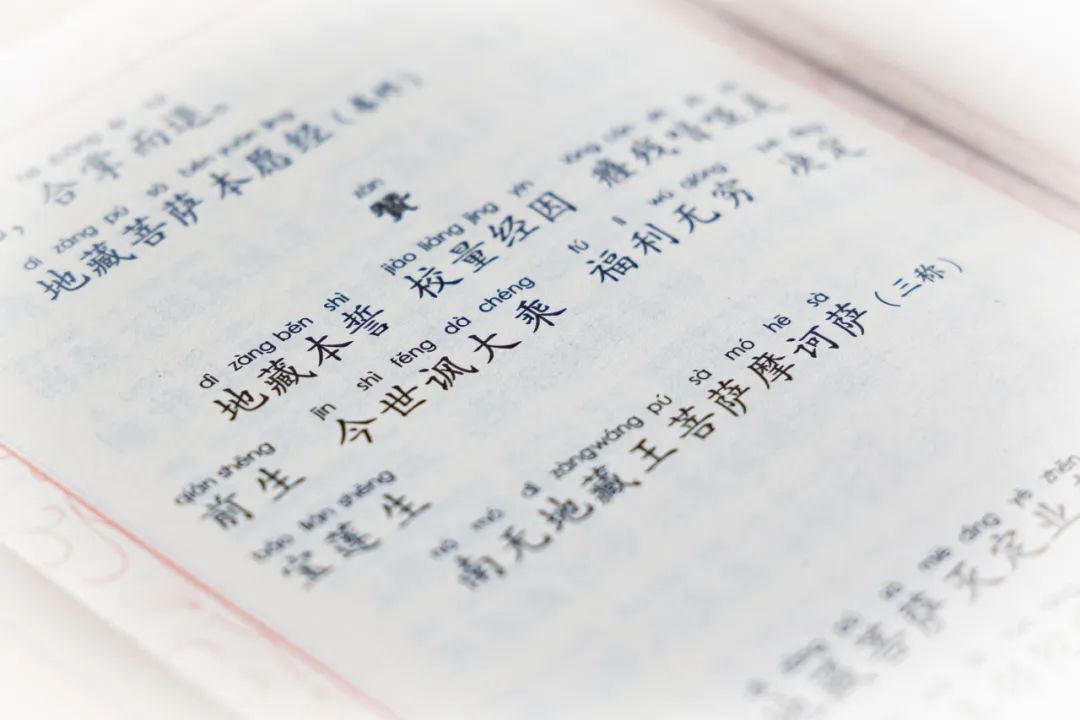 ，合掌而退。
dì zàng pú sà běn yuàn jīng
地藏菩萨本愿经（卷终）
zàn
赞
dì zàng běn shì jiào liàng jīng yīn
地藏本誓 校量经因 癃残喑哑
qián shēng jīn shì fěng dà chéng fú lì wú qióng
前生 今世讽大乘 福利无穷 决定
bǎo lián shēng
宝莲生
nā mó dì zàng wáng pú sà mó hē sà
南无地藏王菩萨摩诃萨（三称）
miè dìng yè zhēn
地藏菩萨灭定业